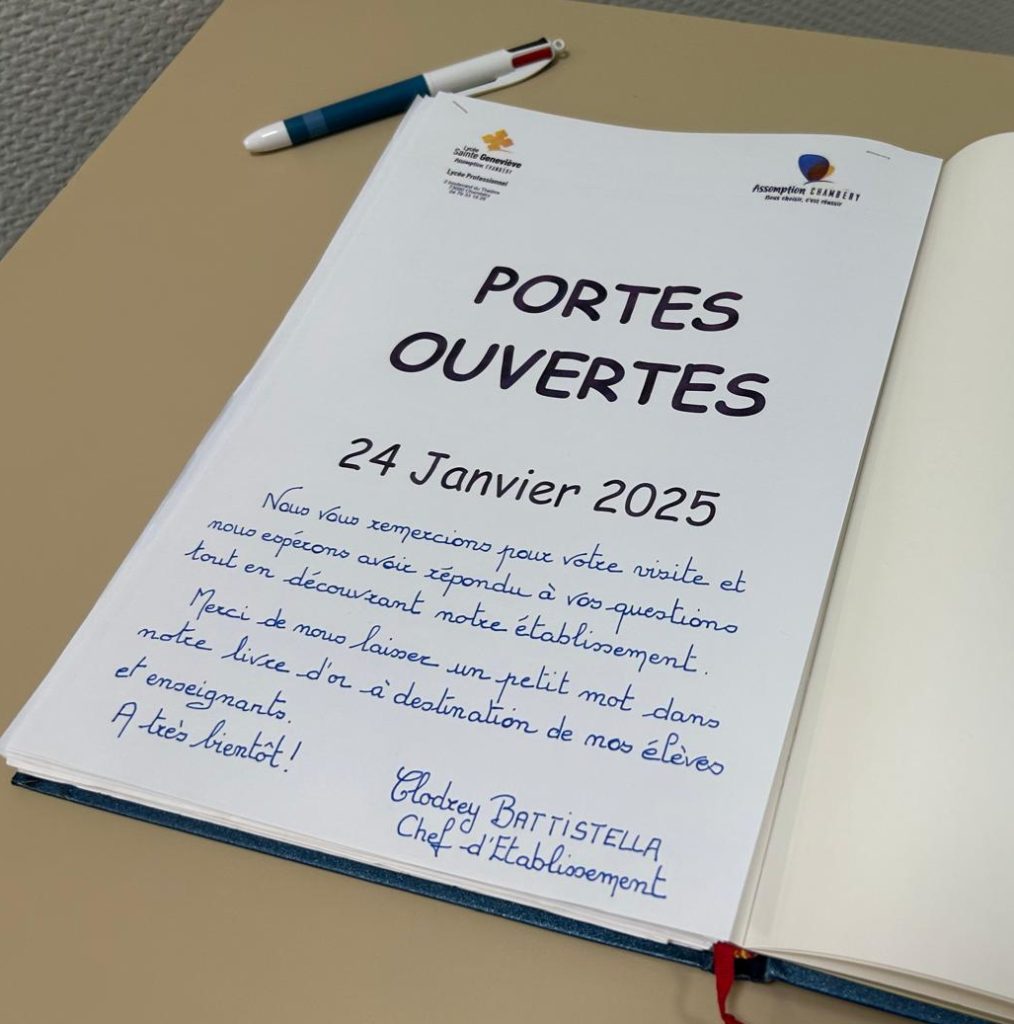 Lycée
Sainte Geneviève
Assomption CHAMBÉRY
Lycée Professionnel
73000 Chambéry
Assomption CHAMBÉRY
Nous choisir, c'est réussir
PORTES
OUVERTES
24 Janvier 2025
Nous vous remercions pour votre visite et
nous espérons avoir répondu à vos questions
tout en découvrant notre établissement.
Merci de nous laisser un petit mot dans
notre livre d'or à destination de nos élèves
et enseignants.
A très bientôt!
Clodrey BATTISTELLA
Chef d'Etablissement